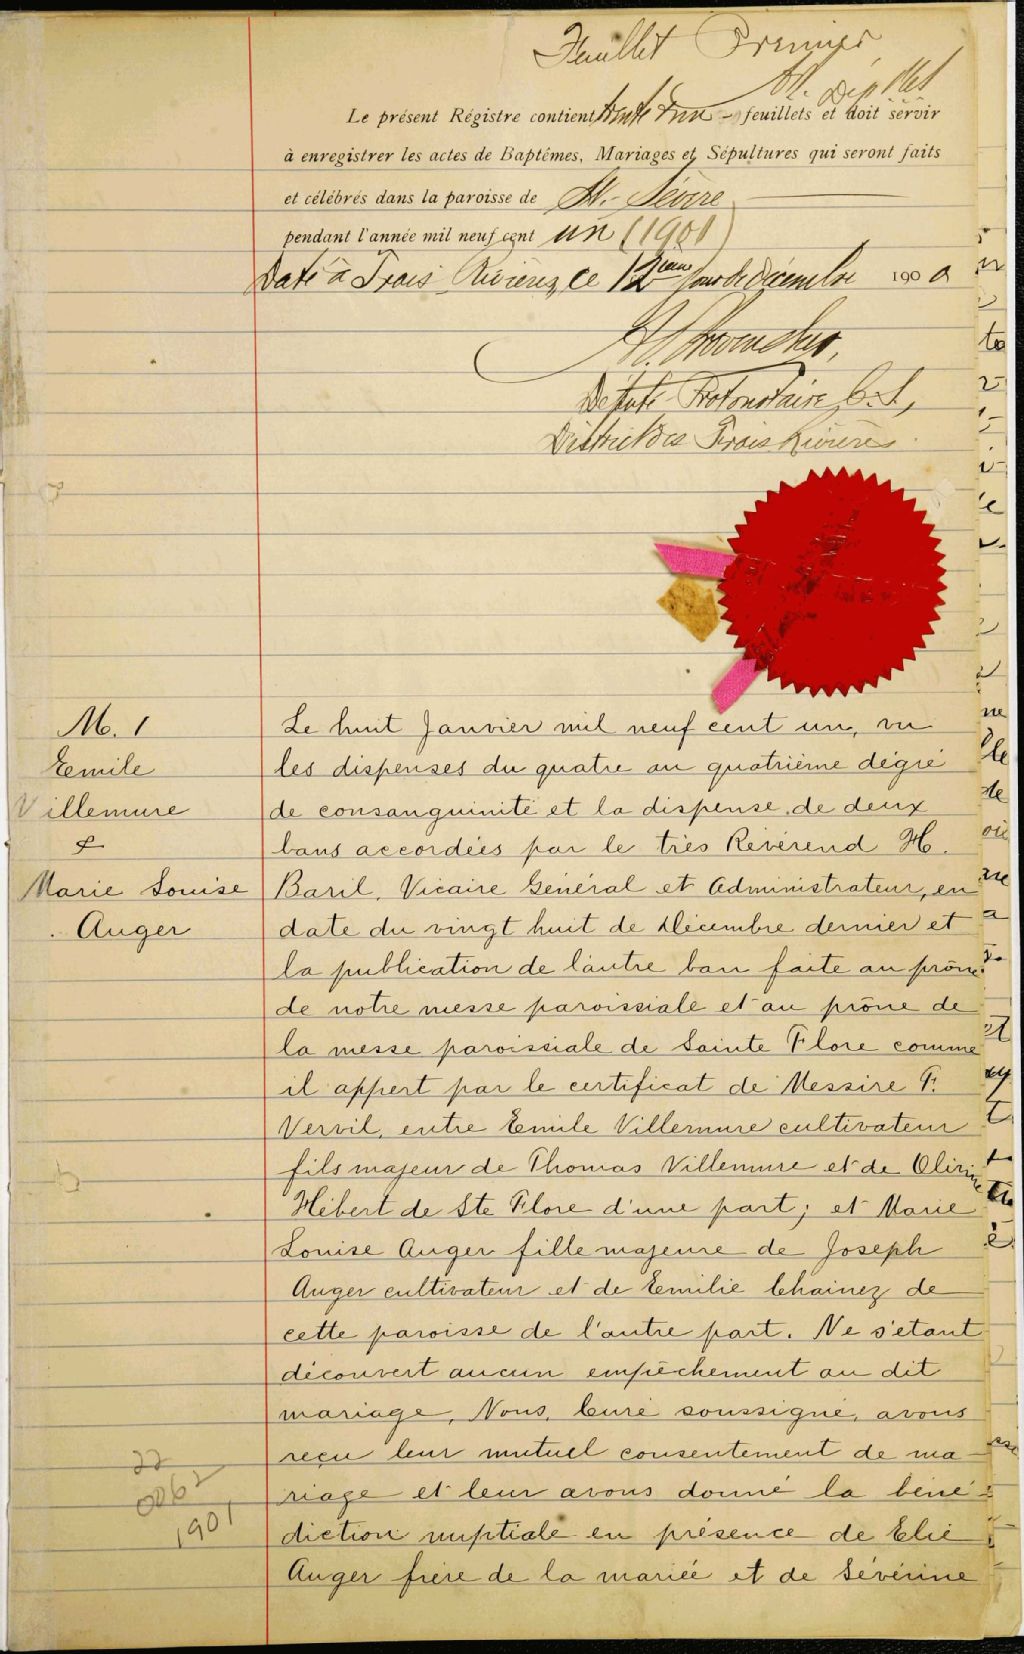 Feuillet Premier
Le présent Régistre contient trente d'un feuillets et doit servir
à enregistrer les actes de Baptêmes, Mariages et Sépultures qui seront faits
et célébrés dans la paroisse de St. Sévère
pendant l'année mil neuf cent un (1901)
Daté à Trois Rivières, ce 12ième jour de décembre 1900
Député Protonotaire C. S.,
District des Trois Rivières.
M. 1
Emile
Villemure
&
Marie Louise
Auger
Le huit Janvier mil neuf cent un, vu
les dispenses du quatre au quatrième dégré
de consanguinité et la dispense de deux
bans accordées par le très Révérend H.
Baril, Vicaire Général et Administrateur, en
date du vingt huit de Décembre dernier et
la publication de l'autre ban faite au prône
de notre messe paroissiale et au prône de
la messe paroissiale de Sainte Flore comme
il appert par le certificat de Messire F.
Vervil, entre Emile Villemure cultivateur
fils majeur de Thomas Villemure et de Olivine
Hébert de Ste Flore d'une part; et Marie
Louise Auger fille majeure de Joseph
Auger cultivateur et de Emilie Chainez de
cette paroisse de l'autre part. Ne s'étant
découvert aucun empêchement au dit
mariage, Nous, Curé soussigné, avons
reçu leur mutuel consentement de ma
riage et leur avons donné la béné-
diction nuptiale en présence de Elie
Auger frère de la mariée et de Sévérine
22
0062
1901